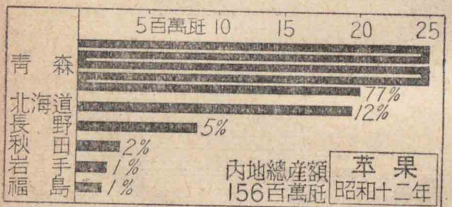 5百萬瓩 10 15 20 25
青森
77%
北海道 12%
長野 5%
秋田 2%
岩手 1%
福島 1%
內地總産額
156百萬瓩
苹果
昭和十二年